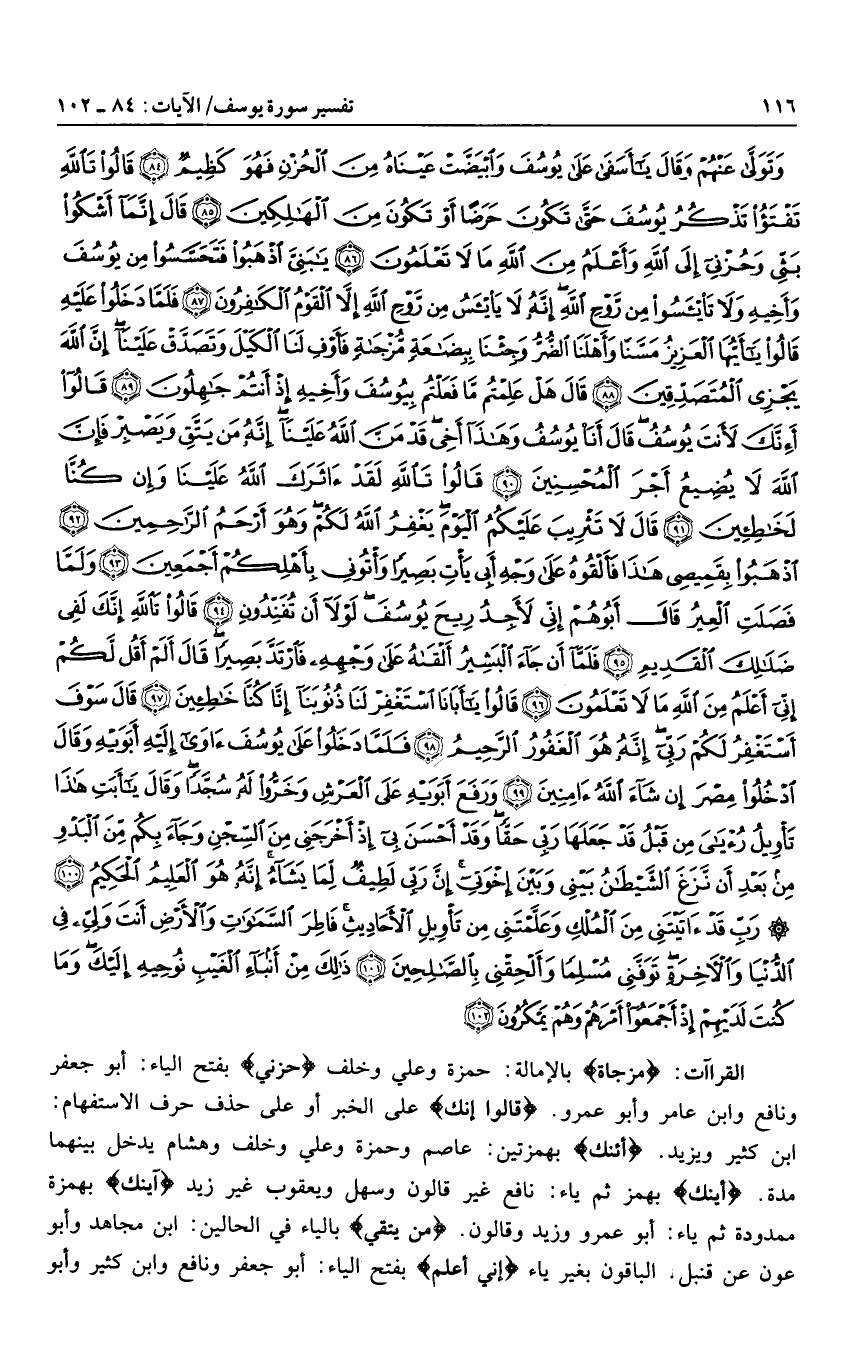 ١١٦ تفسير سورة يوسف/ الآيات: ٨٤ ـ ١٠٢
وَتَوَلَّىٰ عَنْهُمْ وَقَالَ يَٰٓأَسَفَىٰ عَلَىٰ يُوسُفَ وَٱبْيَضَّتْ عَيْنَاهُ مِنَ ٱلْحُزْنِ فَهُوَ كَظِيمٌ ﴿٨٤﴾ قَالُوا۟ تَٱللَّهِ
تَفْتَؤُا۟ تَذْكُرُ يُوسُفَ حَتَّىٰ تَكُونَ حَرَضًا أَوْ تَكُونَ مِنَ ٱلْهَٰلِكِينَ ﴿٨٥﴾ قَالَ إِنَّمَآ أَشْكُوا۟
بَثِّى وَحُزْنِىٓ إِلَى ٱللَّهِ وَأَعْلَمُ مِنَ ٱللَّهِ مَا لَا تَعْلَمُونَ ﴿٨٦﴾ يَٰبَنِىَّ ٱذْهَبُوا۟ فَتَحَسَّسُوا۟ مِن يُوسُفَ
وَأَخِيهِ وَلَا تَا۟يْـَٔسُوا۟ مِن رَّوْحِ ٱللَّهِ ۖ إِنَّهُۥ لَا يَا۟يْـَٔسُ مِن رَّوْحِ ٱللَّهِ إِلَّا ٱلْقَوْمُ ٱلْكَٰفِرُونَ ﴿٨٧﴾ فَلَمَّا دَخَلُوا۟ عَلَيْهِ
قَالُوا۟ يَٰٓأَيُّهَا ٱلْعَزِيزُ مَسَّنَا وَأَهْلَنَا ٱلضُّرُّ وَجِئْنَا بِبِضَٰعَةٍ مُّزْجَىٰةٍ فَأَوْفِ لَنَا ٱلْكَيْلَ وَتَصَدَّقْ عَلَيْنَآ ۖ إِنَّ ٱللَّهَ
يَجْزِى ٱلْمُتَصَدِّقِينَ ﴿٨٨﴾ قَالَ هَلْ عَلِمْتُم مَّا فَعَلْتُم بِيُوسُفَ وَأَخِيهِ إِذْ أَنتُمْ جَٰهِلُونَ ﴿٨٩﴾ قَالُوٓا۟
أَءِنَّكَ لَأَنتَ يُوسُفُ ۖ قَالَ أَنَا۠ يُوسُفُ وَهَٰذَآ أَخِى ۖ قَدْ مَنَّ ٱللَّهُ عَلَيْنَآ ۖ إِنَّهُۥ مَن يَتَّقِ وَيَصْبِرْ فَإِنَّ
ٱللَّهَ لَا يُضِيعُ أَجْرَ ٱلْمُحْسِنِينَ ﴿٩٠﴾ قَالُوا۟ تَٱللَّهِ لَقَدْ ءَاثَرَكَ ٱللَّهُ عَلَيْنَا وَإِن كُنَّا
لَخَٰطِـِٔينَ ﴿٩١﴾ قَالَ لَا تَثْرِيبَ عَلَيْكُمُ ٱلْيَوْمَ ۖ يَغْفِرُ ٱللَّهُ لَكُمْ ۖ وَهُوَ أَرْحَمُ ٱلرَّٰحِمِينَ ﴿٩٢﴾
ٱذْهَبُوا۟ بِقَمِيصِى هَٰذَا فَأَلْقُوهُ عَلَىٰ وَجْهِ أَبِى يَأْتِ بَصِيرًا وَأْتُونِى بِأَهْلِكُمْ أَجْمَعِينَ ﴿٩٣﴾ وَلَمَّا
فَصَلَتِ ٱلْعِيرُ قَالَ أَبُوهُمْ إِنِّى لَأَجِدُ رِيحَ يُوسُفَ ۖ لَوْلَآ أَن تُفَنِّدُونِ ﴿٩٤﴾ قَالُوا۟ تَٱللَّهِ إِنَّكَ لَفِى
ضَلَٰلِكَ ٱلْقَدِيمِ ﴿٩٥﴾ فَلَمَّآ أَن جَآءَ ٱلْبَشِيرُ أَلْقَىٰهُ عَلَىٰ وَجْهِهِۦ فَٱرْتَدَّ بَصِيرًا ۖ قَالَ أَلَمْ أَقُل لَّكُمْ
إِنِّىٓ أَعْلَمُ مِنَ ٱللَّهِ مَا لَا تَعْلَمُونَ ﴿٩٦﴾ قَالُوا۟ يَٰٓأَبَانَا ٱسْتَغْفِرْ لَنَا ذُنُوبَنَآ إِنَّا كُنَّا خَٰطِـِٔينَ ﴿٩٧﴾ قَالَ سَوْفَ
أَسْتَغْفِرُ لَكُمْ رَبِّىٓ ۖ إِنَّهُۥ هُوَ ٱلْغَفُورُ ٱلرَّحِيمُ ﴿٩٨﴾ فَلَمَّا دَخَلُوا۟ عَلَىٰ يُوسُفَ ءَاوَىٰٓ إِلَيْهِ أَبَوَيْهِ وَقَالَ
ٱدْخُلُوا۟ مِصْرَ إِن شَآءَ ٱللَّهُ ءَامِنِينَ ﴿٩٩﴾ وَرَفَعَ أَبَوَيْهِ عَلَى ٱلْعَرْشِ وَخَرُّوا۟ لَهُۥ سُجَّدًا ۖ وَقَالَ يَٰٓأَبَتِ هَٰذَا
تَأْوِيلُ رُءْيَٰىَ مِن قَبْلُ قَدْ جَعَلَهَا رَبِّى حَقًّا ۖ وَقَدْ أَحْسَنَ بِىٓ إِذْ أَخْرَجَنِى مِنَ ٱلسِّجْنِ وَجَآءَ بِكُم مِّنَ ٱلْبَدْوِ
مِنۢ بَعْدِ أَن نَّزَغَ ٱلشَّيْطَٰنُ بَيْنِى وَبَيْنَ إِخْوَتِىٓ ۚ إِنَّ رَبِّى لَطِيفٌ لِّمَا يَشَآءُ ۚ إِنَّهُۥ هُوَ ٱلْعَلِيمُ ٱلْحَكِيمُ ﴿١٠٠﴾
۞ رَبِّ قَدْ ءَاتَيْتَنِى مِنَ ٱلْمُلْكِ وَعَلَّمْتَنِى مِن تَأْوِيلِ ٱلْأَحَادِيثِ ۚ فَاطِرَ ٱلسَّمَٰوَٰتِ وَٱلْأَرْضِ أَنتَ وَلِىِّۦ فِى
ٱلدُّنْيَا وَٱلْءَاخِرَةِ ۖ تَوَفَّنِى مُسْلِمًا وَأَلْحِقْنِى بِٱلصَّٰلِحِينَ ﴿١٠١﴾ ذَٰلِكَ مِنْ أَنۢبَآءِ ٱلْغَيْبِ نُوحِيهِ إِلَيْكَ ۖ وَمَا
كُنتَ لَدَيْهِمْ إِذْ أَجْمَعُوٓا۟ أَمْرَهُمْ وَهُمْ يَمْكُرُونَ ﴿١٠٢﴾
القراآت: ﴿مزجاة﴾ بالإمالة: حمزة وعلي وخلف ﴿حزني﴾ بفتح الياء: أبو جعفر
ونافع وابن عامر وأبو عمرو. ﴿قالوا إنك﴾ على الخبر أو على حذف حرف الاستفهام:
ابن كثير ويزيد. ﴿أئنك﴾ بهمزتين: عاصم وحمزة وعلي وخلف وهشام يدخل بينهما
مدة. ﴿أينك﴾ بهمز ثم ياء: نافع غير قالون وسهل ويعقوب غير زيد ﴿آينك﴾ بهمزة
ممدودة ثم ياء: أبو عمرو وزيد وقالون. ﴿من يتقي﴾ بالياء في الحالين: ابن مجاهد وأبو
عون عن قنبل، الباقون بغير ياء ﴿إني أعلم﴾ بفتح الياء: أبو جعفر ونافع وابن كثير وأبو